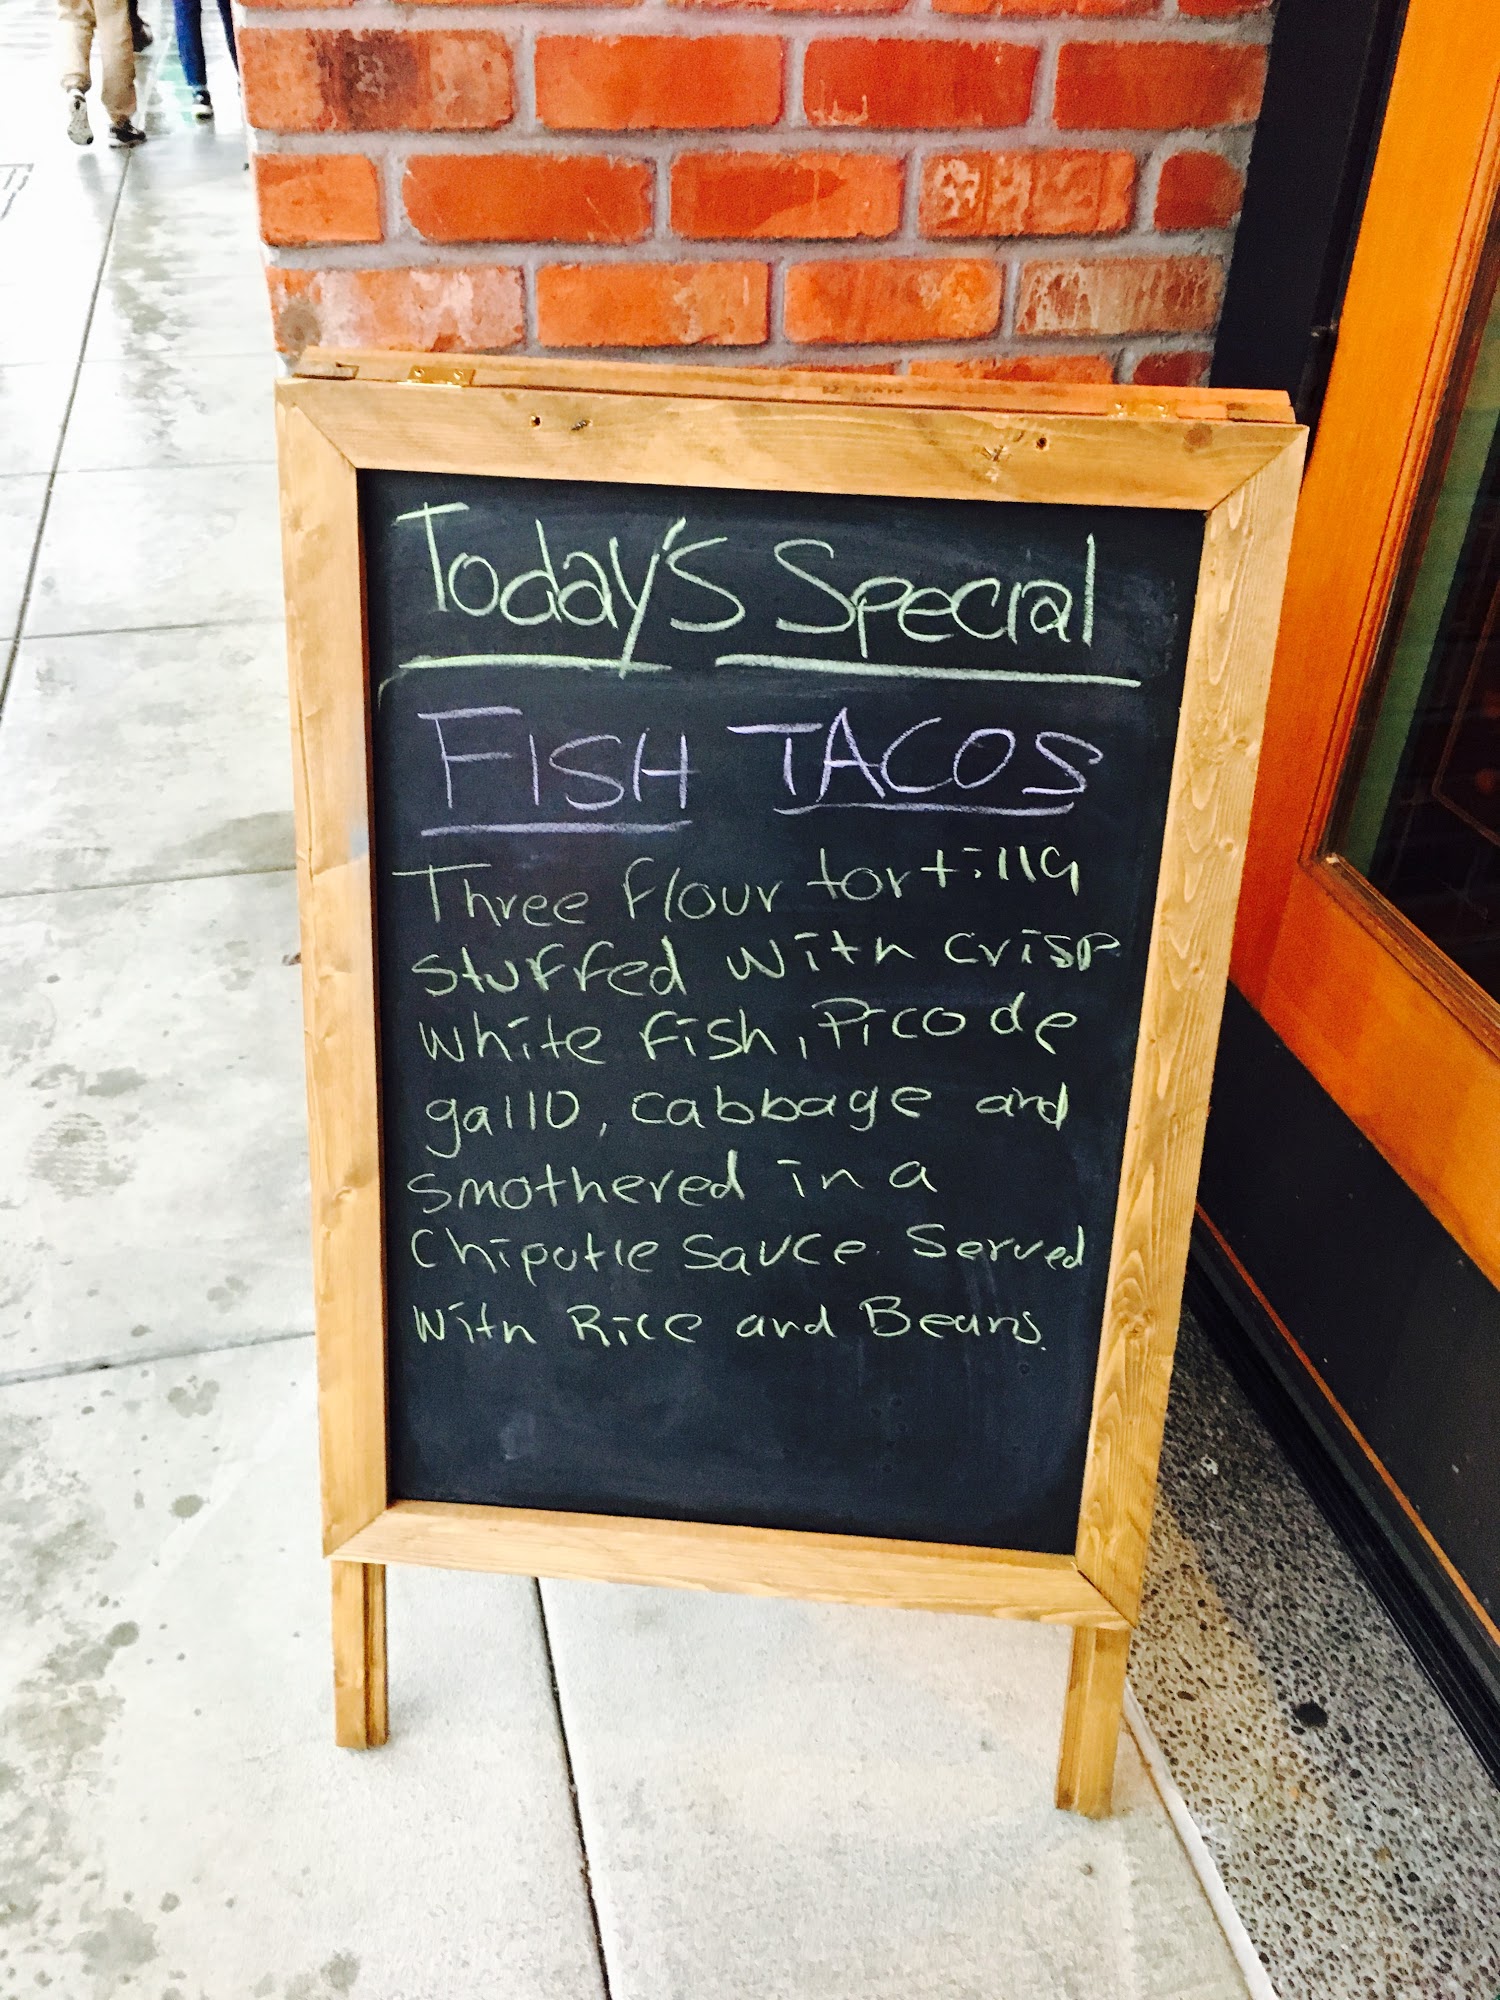 Today's Special
FISH TACOS
Three flour tortilla
stuffed with crisp
white fish, Pico de
gallo, cabbage and
smothered in a
Chipotle sauce. Served
with Rice and Beans.